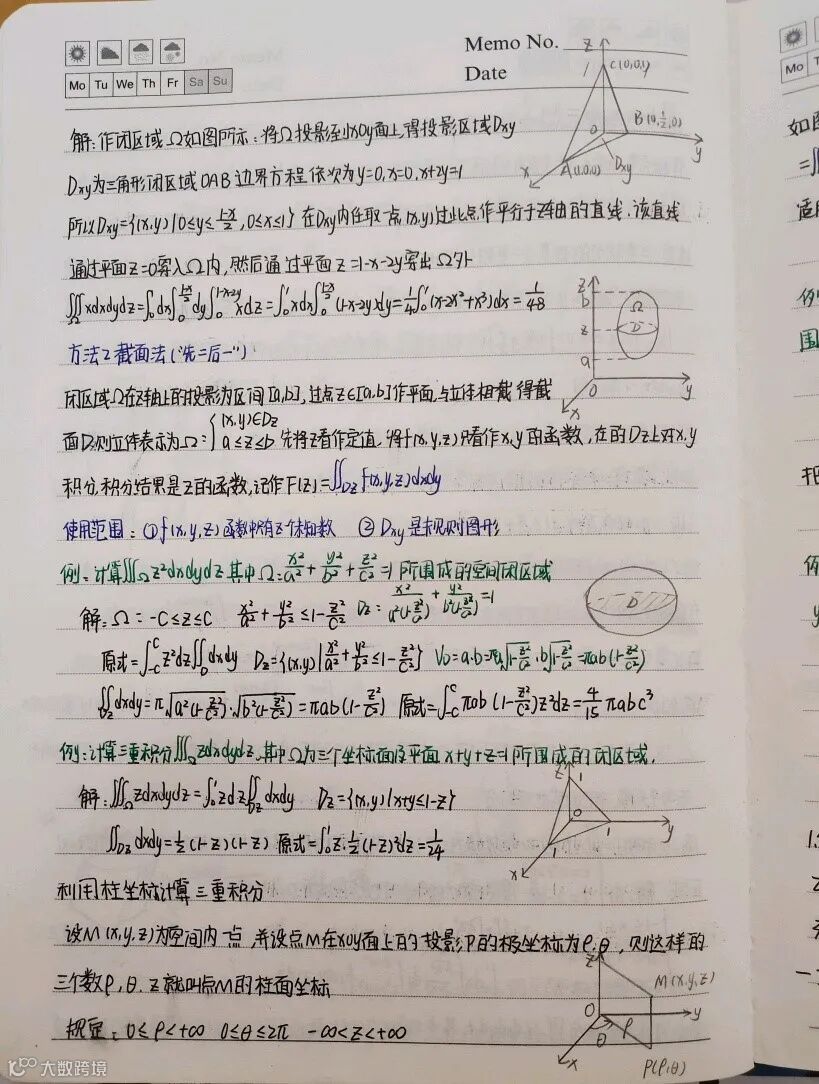 Memo No.
Date
Mo Tu We Th Fr Sa Su
z
1
C(0,0,1)
B(0,½,0)
O
y
x
A(1,0,0)
Dxy
解:作闭区域Ω如图所示:将Ω投影至xoy面上,得投影区域Dxy
Dxy为三角形闭区域OAB边界方程依次为y=0,x=0,x+2y=1
所以Dxy={(x,y)|0≤y≤(1-x)/2,0≤x≤1} 在Dxy内任取一点(x,y)过此点作平行于Z轴的直线.该直线
通过平面z=0穿入Ω内,然后通过平面z=1-x-2y穿出Ω外
∭_Ω xdxdydz=∫₀¹dx∫₀^((1-x)/2)dy∫₀^(1-x-2y)xdz=∫₀¹xdx∫₀^((1-x)/2)(1-x-2y)dy=¼∫₀¹(x-2x²+x³)dx=1/48
z
b
Ω
z
D
a
O
y
x
方法2截面法("先二后一")
闭区域Ω在Z轴上的投影为区间[a,b],过点z∈[a,b]作平面,与立体相截得截
面D,则立体表示为Ω={(x,y)∈Dz a≤z≤b 先将z看作定值,将f(x,y,z)只看作x,y的函数,在的Dz上对x,y
积分,积分结果是z的函数,记作F(z)=∬_Dz f(x,y,z)dxdy
使用范围:①f(x,y,z)函数中只有z个未知数 ②Dxy是规则图形
例:计算∭_Ω z²dxdydz其中Ω:x²/a²+y²/b²+z²/c²=1所围成的空间闭区域
解:Ω=-c≤z≤c x²/a²+y²/b²≤1-z²/c² Dz=x²/a²(1-z²/c²)+y²/b²(1-z²/c²)=1
D
原式=∫_-c^c z²dz∬_D dxdy Dz={(x,y)|x²/a²+y²/b²≤1-z²/c²} V_D=a·b=πa√(1-z²/c²)·b√(1-z²/c²)=πab(1-z²/c²)
∬_Dz dxdy=π√(a²(1-z²/c²))·√(b²(1-z²/c²))=πab(1-z²/c²) 原式=∫_-c^c πab(1-z²/c²)z²dz=4/15 πabc³
例:计算三重积分∭_Ω zdxdydz,其中Ω为三个坐标面及平面x+y+z=1所围成的闭区域.
解:∭_Ω zdxdydz=∫₀¹zdz∬_Dz dxdy Dz={(x,y)|x+y≤1-z}
∬_Dz dxdy=½(1-z)(1-z) 原式=∫₀¹z·½(1-z)²dz=1/24
z
1
O
1
y
1
x
利用柱坐标计算三重积分
设M(x,y,z)为空间内一点,并设点M在xoy面上的投影P的极坐标为ρ,θ,则这样的
三个数ρ,θ.z就叫点M的柱面坐标
规定:0≤ρ<+∞ 0≤θ≤2π -∞<z<+∞
z
M(x,y,z)
O
y
θ
ρ
x
P(ρ,θ)
大数跨境